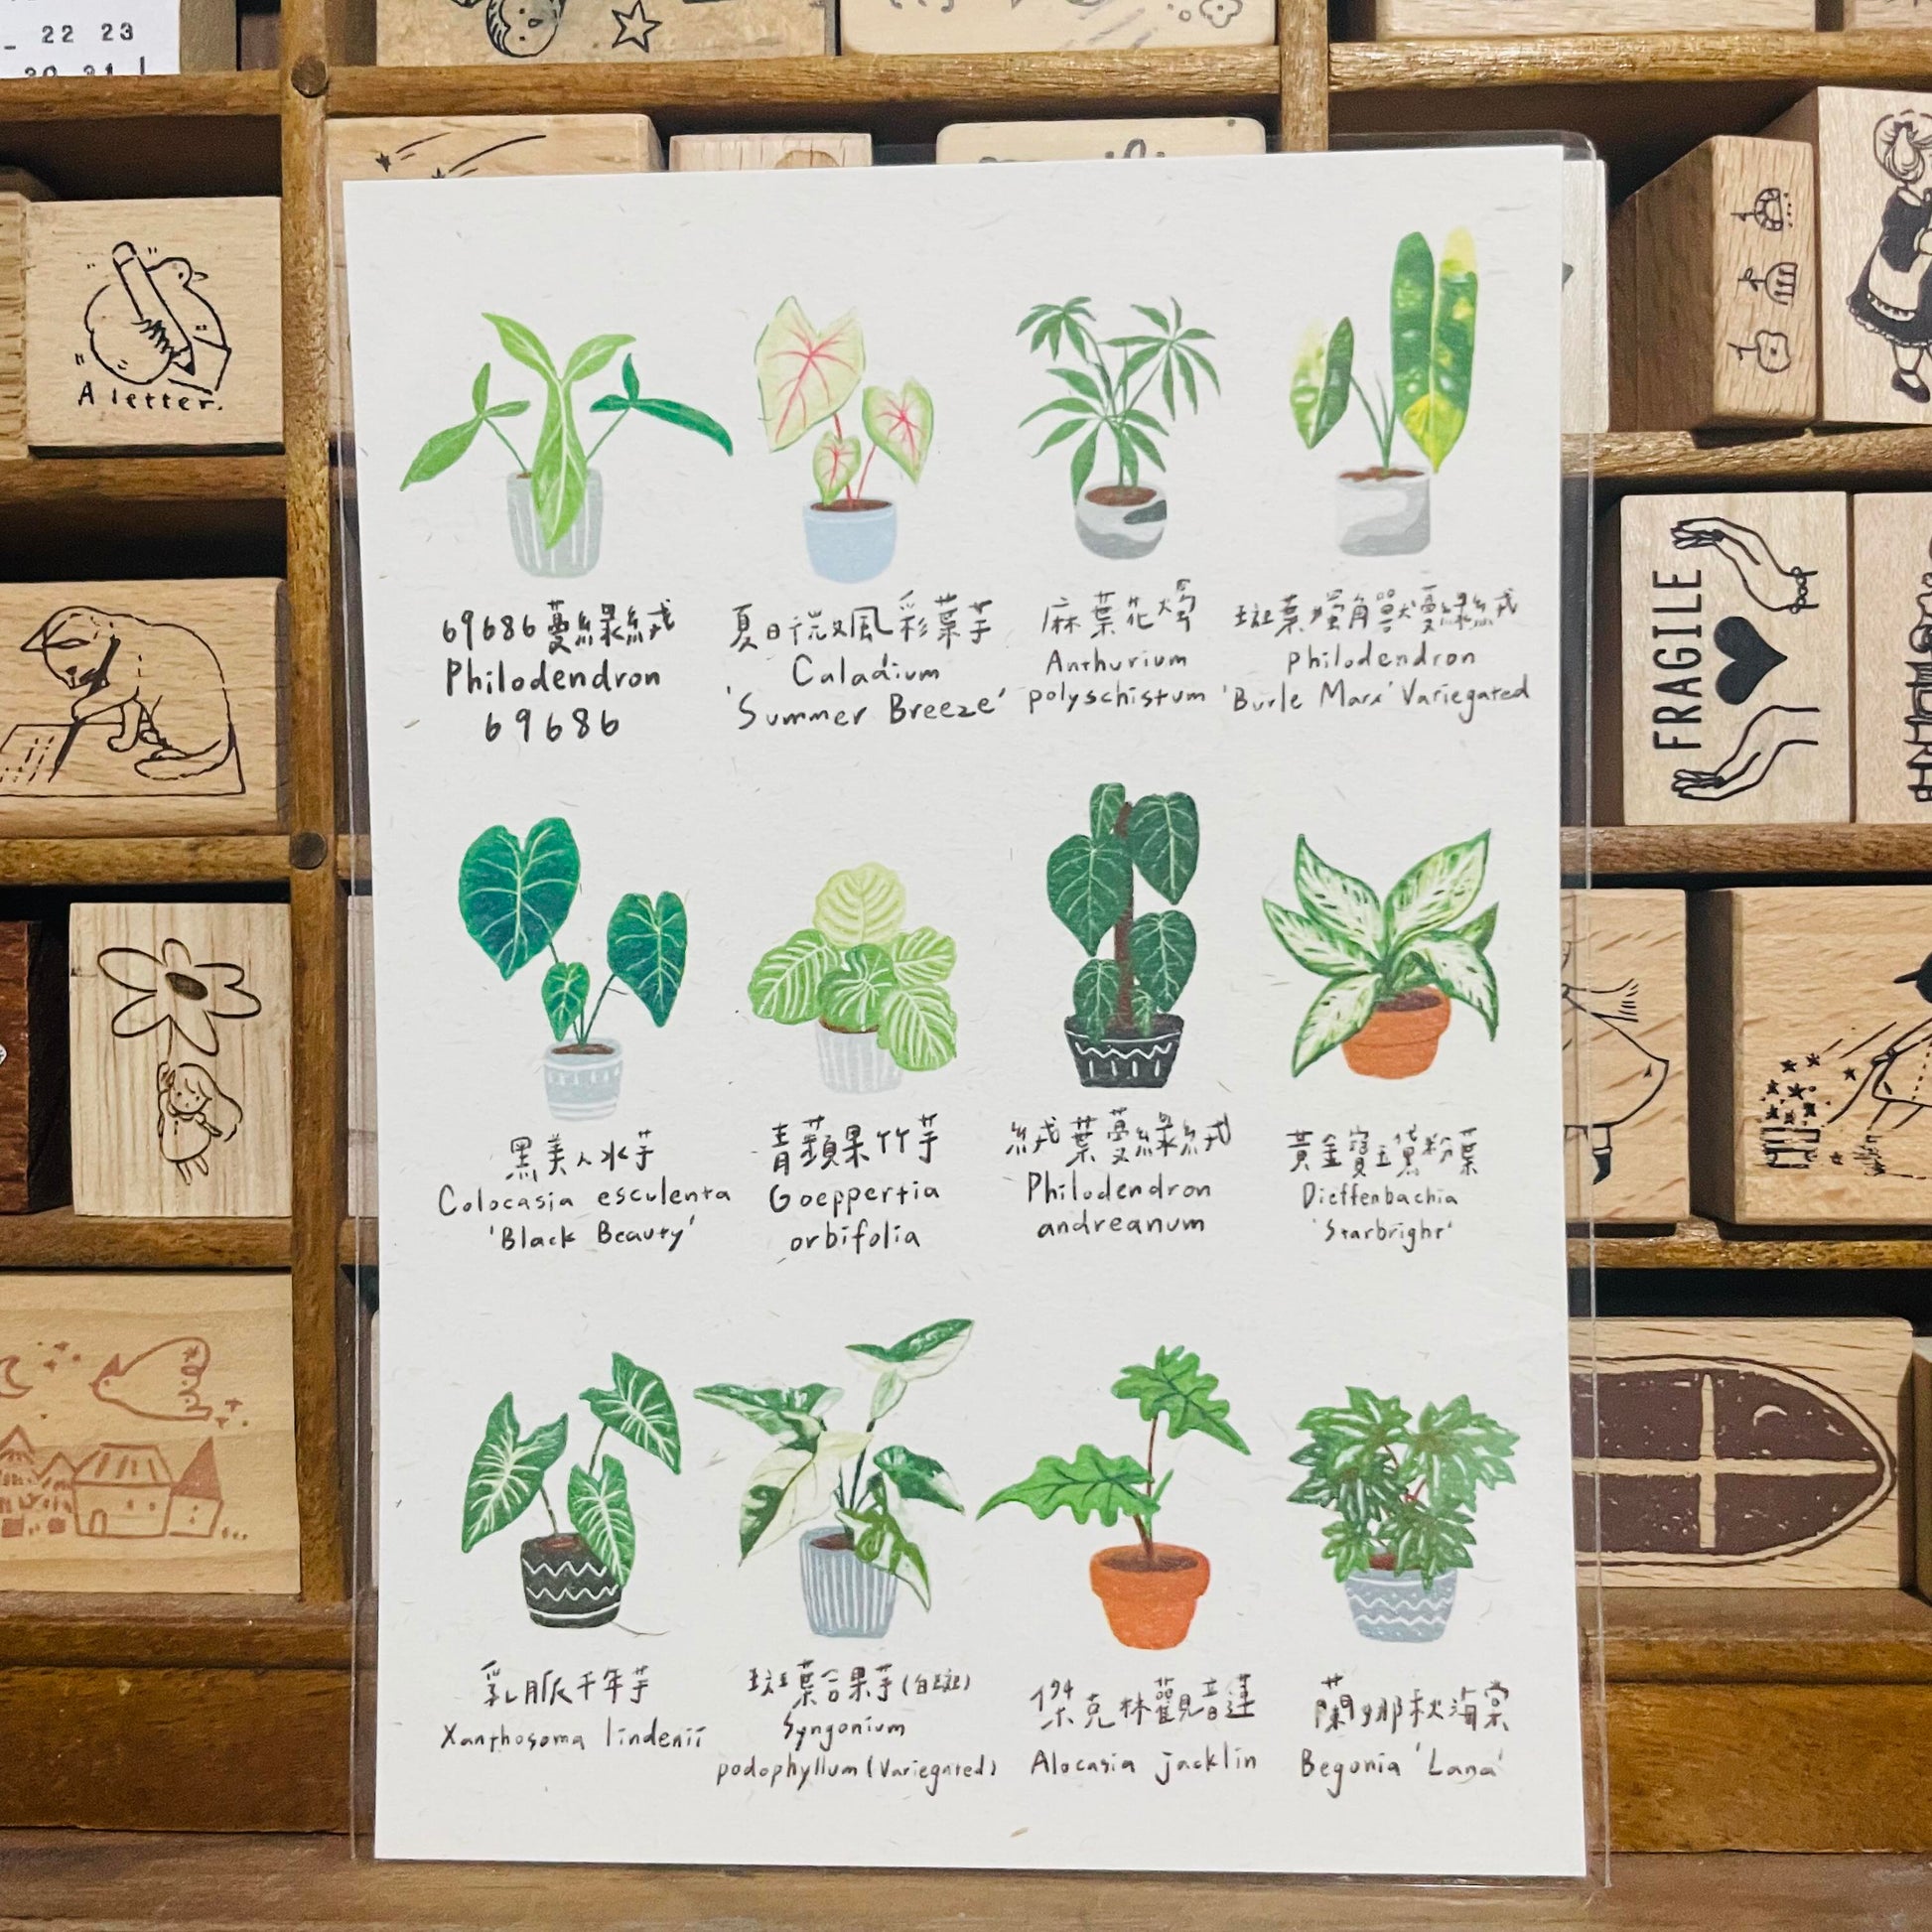 22 23
30 31
A letter.
FRAGILE
69686蔓綠絨
Philodendron
69686
夏日微風彩葉芋
Caladium
'Summer Breeze'
麻葉花燭
Anthurium
polyschistum
斑葉蠻角獸蔓綠絨
Philodendron
'Burle Marx' Variegated
黑美人水芋
Colocasia esculenta
'Black Beauty'
青蘋果竹芋
Goeppertia
orbifolia
絨葉蔓綠絨
Philodendron
andreanum
黃金寶玉黛粉葉
Dieffenbachia
'Starbright'
乳脈千年芋
Xanthosoma lindenii
斑葉合果芋(白斑)
Syngonium
podophyllum (Variegated)
傑克林觀音蓮
Alocasia jacklin
蘭娜秋海棠
Begonia 'Lana'